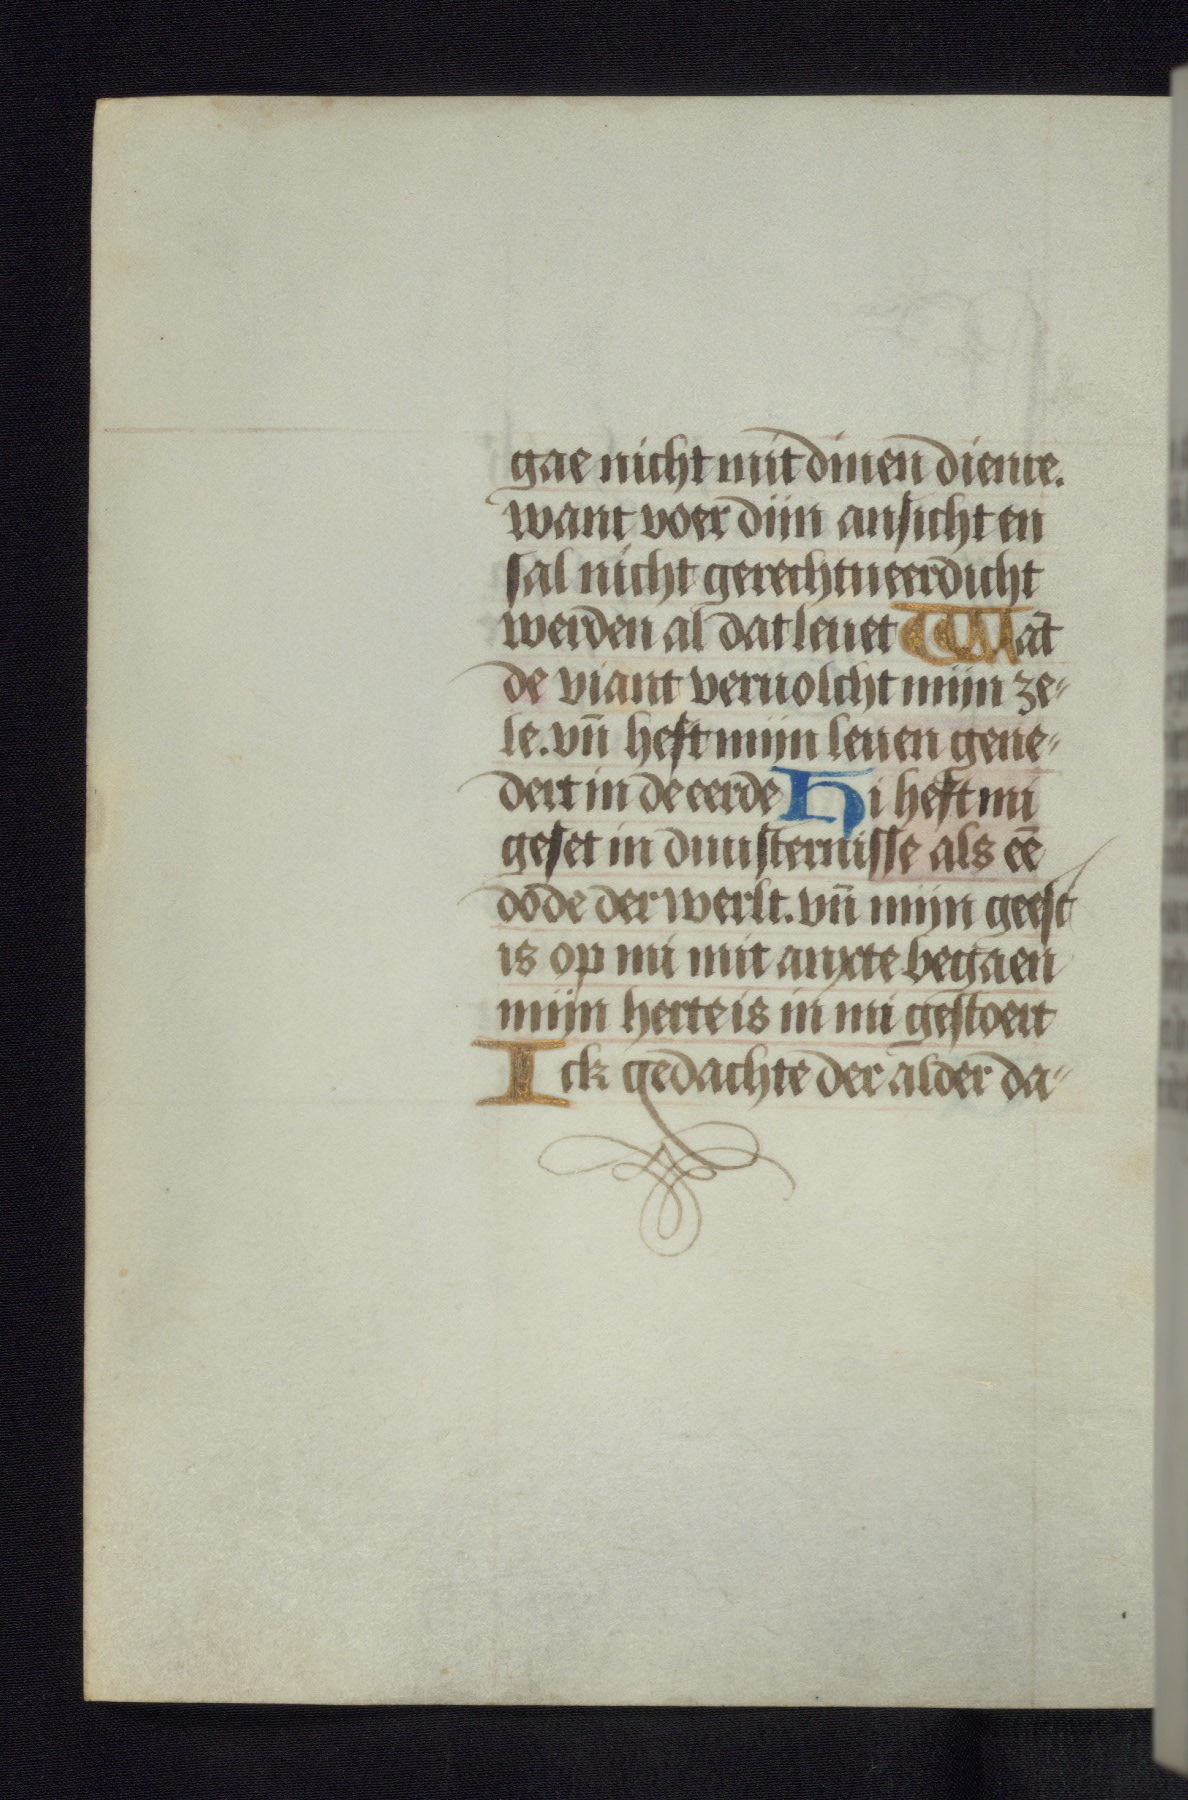 gae nicht mit dinen dienre.
want voer dijn ansicht en
sal nicht gerechtueerdicht
werden al dat leuet Wāt
de viant veruolcht mijn ze-
le. vn̄ heft mijn leuen gene-
dert in de eerde Hi heft mi
geset in duusternisse als eē
dode der werlt. vn̄ mijn geest
is op mi mit anxte begaen
mijn herte is in mi gestoert
Ick gedachte der alder da-